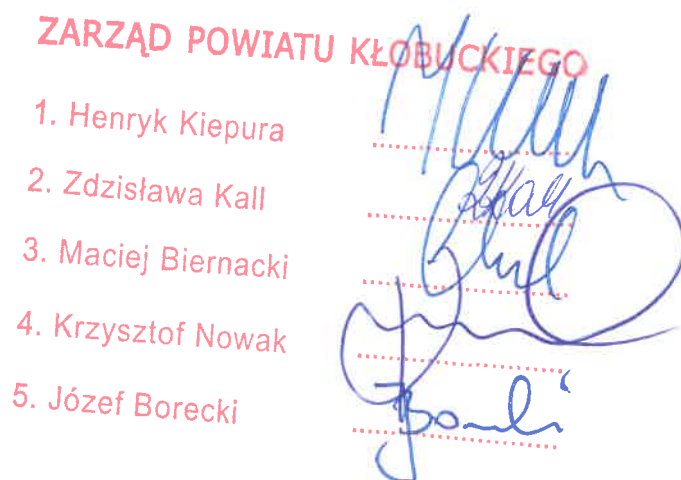 ZARZĄD POWIATU KŁOBUCKIEGO
1. Henryk Kiepura
2. Zdzisława Kall
3. Maciej Biernacki
4. Krzysztof Nowak
5. Józef Borecki